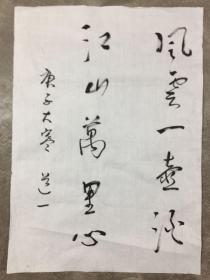 風雲一壺酒
江山萬里心
庚子大寒 道一